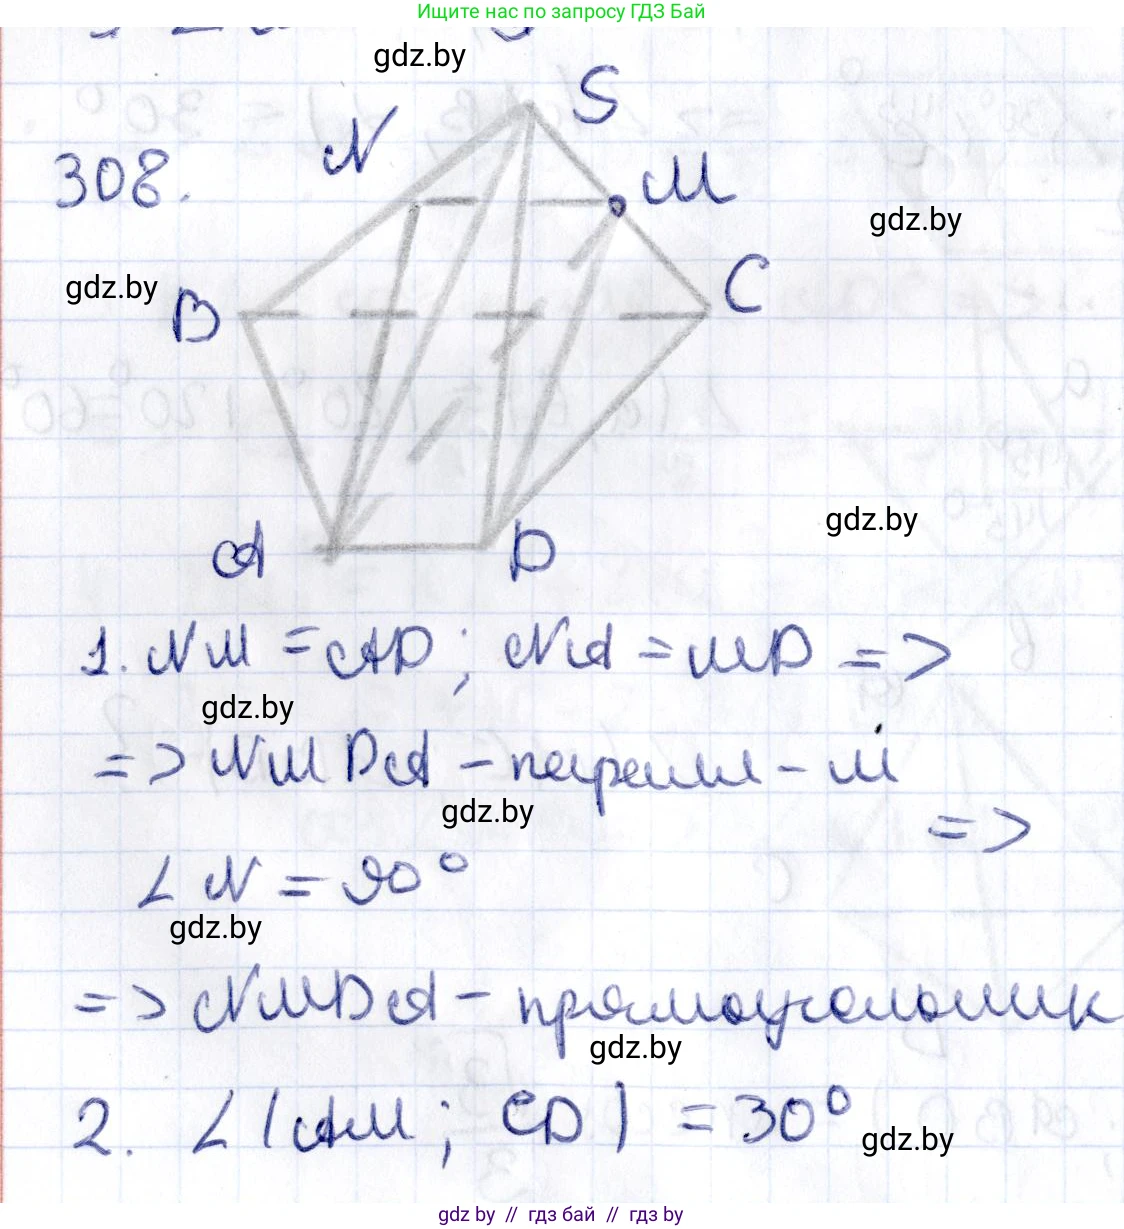 Ищите нас по запросу ГДЗ Бай
gdz.by
S
N
308.
M
gdz.by
gdz.by
B
C
gdz.by
A
D
1. NM = AD; NA = MD =>
gdz.by
=> NMDA - паралл-м
gdz.by
=>
∠N = 90°
gdz.by
=> NMDA - прямоугольник
gdz.by
2. ∠(AM; CD) = 30°
gdz.by
gdz.by // гдз бай // gdz.by